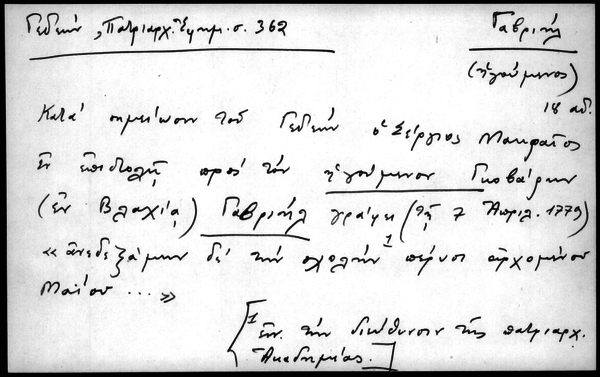 Γεδεών, Πατριαρχ. Ἐφημ. σ. 362
Γαβριήλ
(ἡγούμενος)
18 αἰ.
Κατά σημείωσιν τοῦ Γεδεών ὁ Σέργιος Μακραῖος
ἐν ἐπιστολῇ πρός τόν ἡγούμενον
(ἐν Βλαχίᾳ) Γαβριήλ γράφει (τῇ 7 Ἀπριλ. 1779)
«ἀνεδεξάμην δέ τήν σχολήν πέρυσι ἀρχομένου 1
Μαΐου ... »
[1 ἐν. τήν διεύθυνσιν τῆς πατριαρχ.
Ἀκαδημίας.]